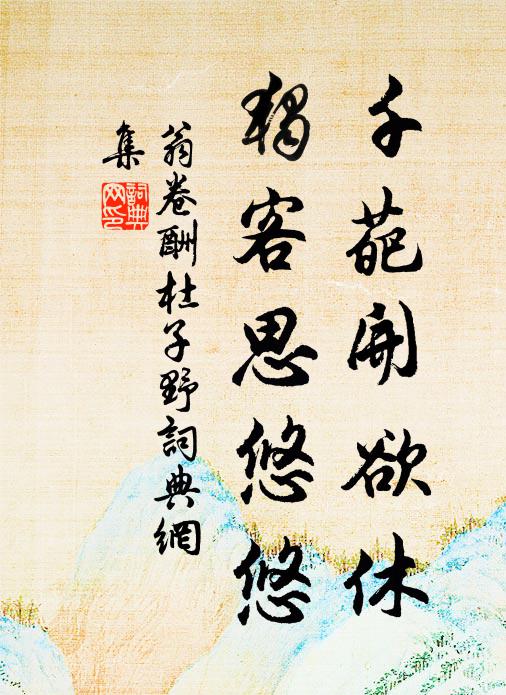 千葩開欲休
獨客思悠悠
翁卷酬杜子野詞典網
集
詞典
网印